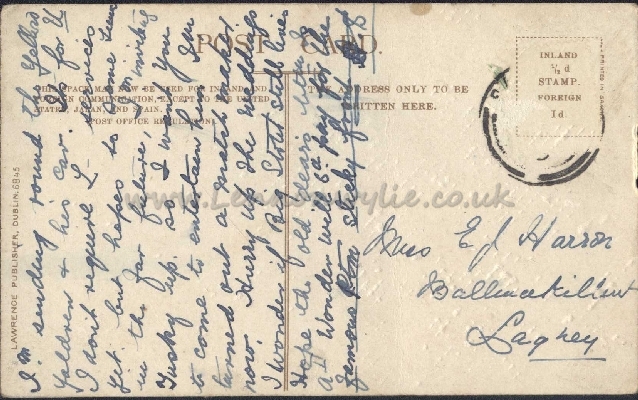 POST CARD.
THIS SPACE MAY NOW BE USED FOR INLAND AND
FOREIGN COMMUNICATION, EXCEPT TO THE UNITED
STATES, JAPAN, AND SPAIN.
(POST OFFICE REGULATION).
THE ADDRESS ONLY TO BE
WRITTEN HERE.
INLAND
½ d
STAMP.
FOREIGN
1d
LAWRENCE PUBLISHER, DUBLIN. 6845
www.Lennonwylie.co.uk
I'm sending round the
& his car. for U
I don't require services
Yet but hopes to some time
in the far future. I'm inviting
Tusky up. so I want you
to come to entertain him. I'm
turned out a matchmaker
now. Hurry up the weddings
I wonder if Big Stout still lives
Hope the old dears
a I Wonder will 6d pay for the
famous
Miss E J Harron
Ballmakillint
Laghey